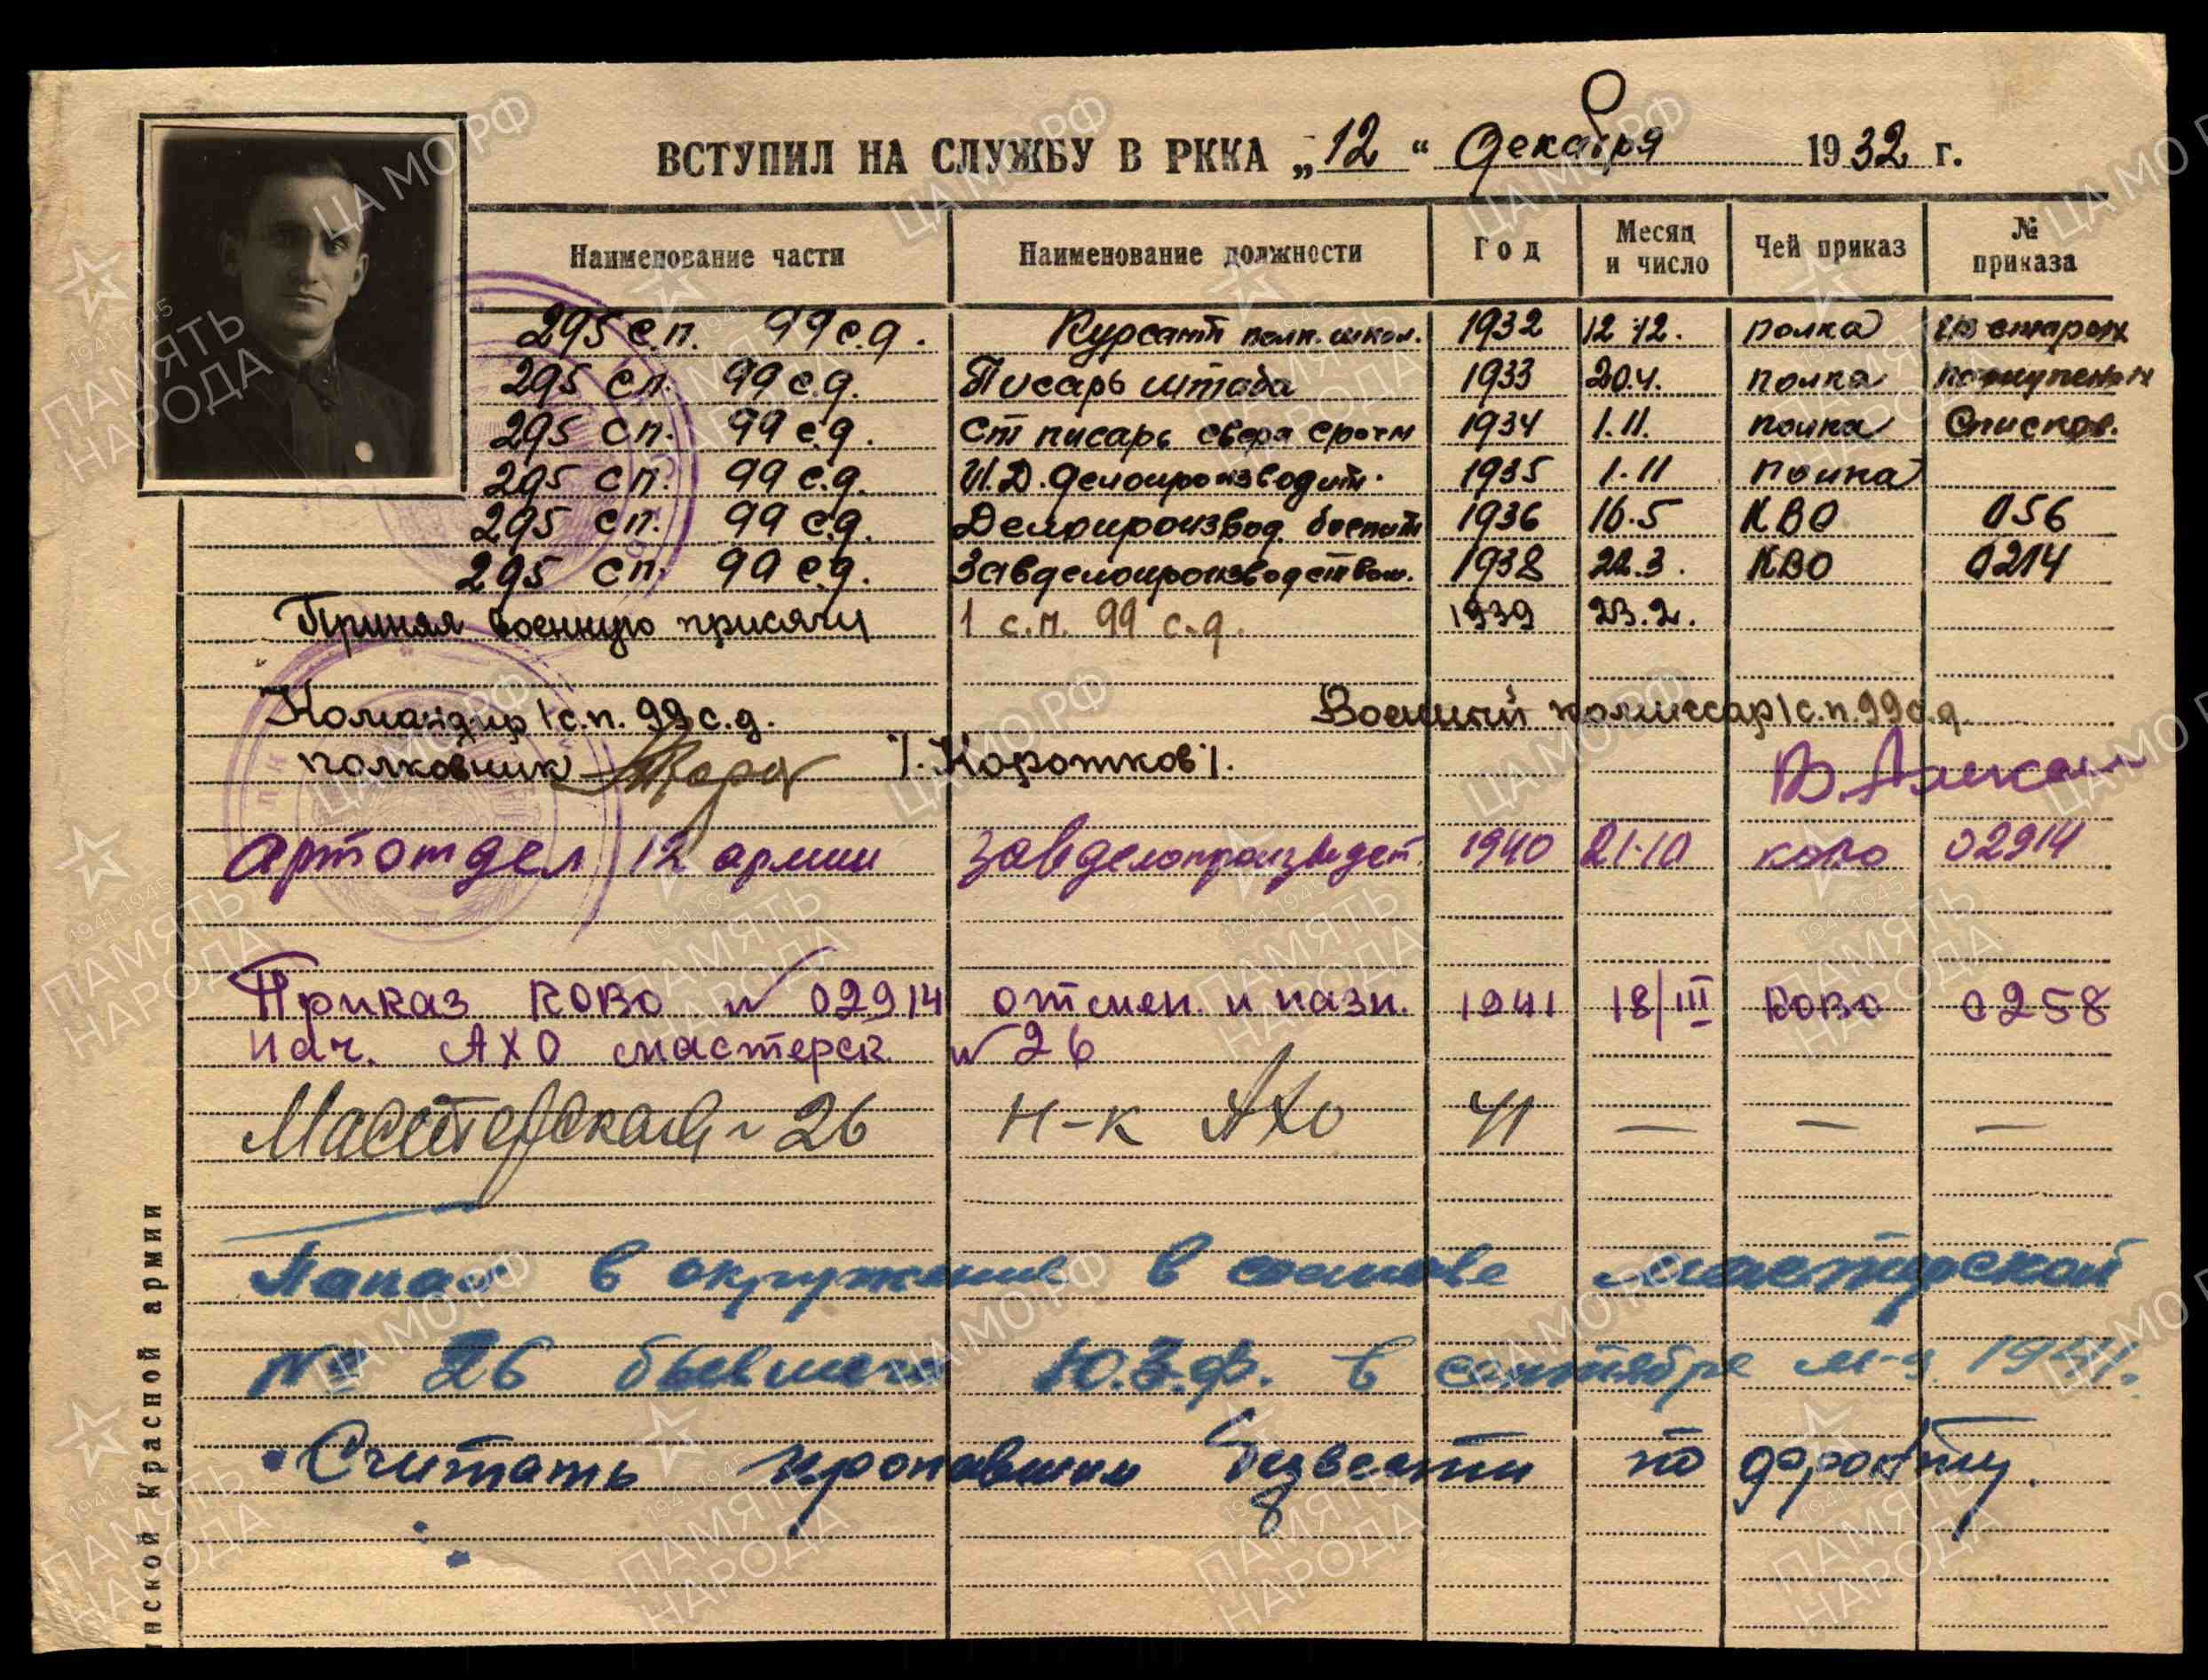 ВСТУПИЛ НА СЛУЖБУ В РККА „12“ декабря 1932 г.
Наименование части Наименование должности Год Месяц и число Чей приказ № приказа
295 с.п. 99 с.д. Курсант полк. школ. 1932 12.12. полка из старых
295 сп. 99 с.д. Писарь штаба 1933 20.4. полка
295 сп. 99 с.д. Ст писарь сверх срочн 1934 1.11. полка списков.
295 сп. 99 с.д. И.Д. делопроизводит. 1935 1.11 полка
295 сп. 99 с.д. Делопроизвод. боепит 1936 16.5 КВО 056
295 сп. 99 с.д. Завделопроизводством. 1938 22.3. КВО 0214
Принял военную присягу 1 с.п. 99 с.д. 1939 23.2.
Командир 1 с.п. 99 с.д. Военный комиссар 1 с.п. 99 с.д.
полковник /.Коротков/.
Артотдел 12 армии завделопроизвдст. 1940 21.10 КОВО 02914
Приказ КОВО № 02914 отмен. и назн. 1941 18/III КОВО 0258
нач. АХО мастерск № 26
Мастерская № 26 Н-к АХО 41 — — —
Попал в окружение в составе мастерской
№ 26 бывшего Ю.З.Ф. в сентябре м-це 1941г.
Считать пропавшим безвести по фронту.
нской Красной армии
ЦА МО РФ
ПАМЯТЬ НАРОДА
1941-1945